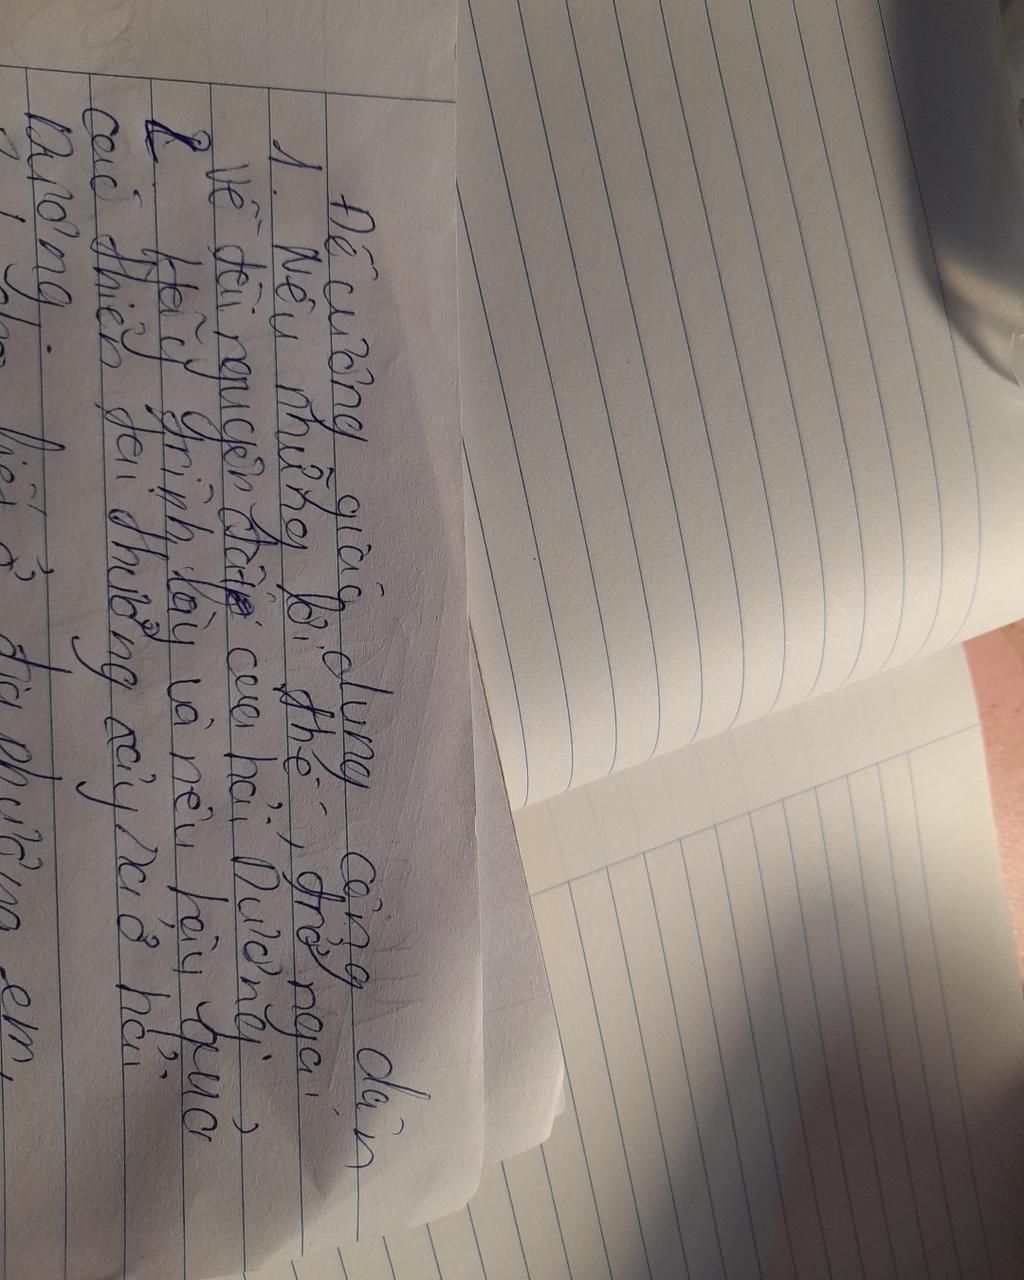 Đề cương giáo dụng công dân
1. Nêu những lợi thế, trở ngại
về tài nguyên đất của hải Dương?
2. Hãy trình bày và nêu hậu quả
các thiên tai thường xảy ra ở hải
Dương.
liên ở địa phương em